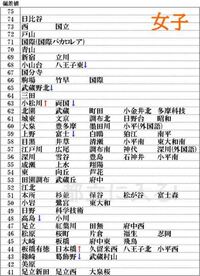 偏差値
女子
75
74 日比谷
73 西 国立
72 戸山
71 国際(国際バカロレア)
70 青山
69 新宿 立川
68 小山台 八王子東
67 国分寺
66 駒場 竹早 国際
65 武蔵野北
64 三田
63 小松川↑ 両国↓
62 北園 武蔵 町田 小金井北 多摩科技
61 城東 文京 調布北 日野台 昭和
60 大泉 豊多摩 墨田川 小平(外国語)
59 上野 富士 白鷗 狛江 南平
58 目黒 井草 清瀬 小平南 東大和南
57 江戸川 広尾 調布南 神代 深川(外国語)
56 深川 雪谷 豊島 石神井 小平
55 成瀬 上水 翔陽
54 東 向丘 芦花
53 田園調布 武蔵丘 府中
52 江北
51 本所 杉並 保谷 松が谷 富士森
50 小岩 鷺宮 東大和
49 日野 科学技術
48 高島 小川
47 足立 紅葉川 田無 府中西
46 松原 桜町 片倉 福生 忍岡
45 大崎 板橋 府中東 飛鳥
44 板橋有徳 日本橋↑ 久留米西 八王子北 小平西
43 篠崎 葛飾野 武蔵村山
42 美原
41 足立新田 足立西 大泉桜